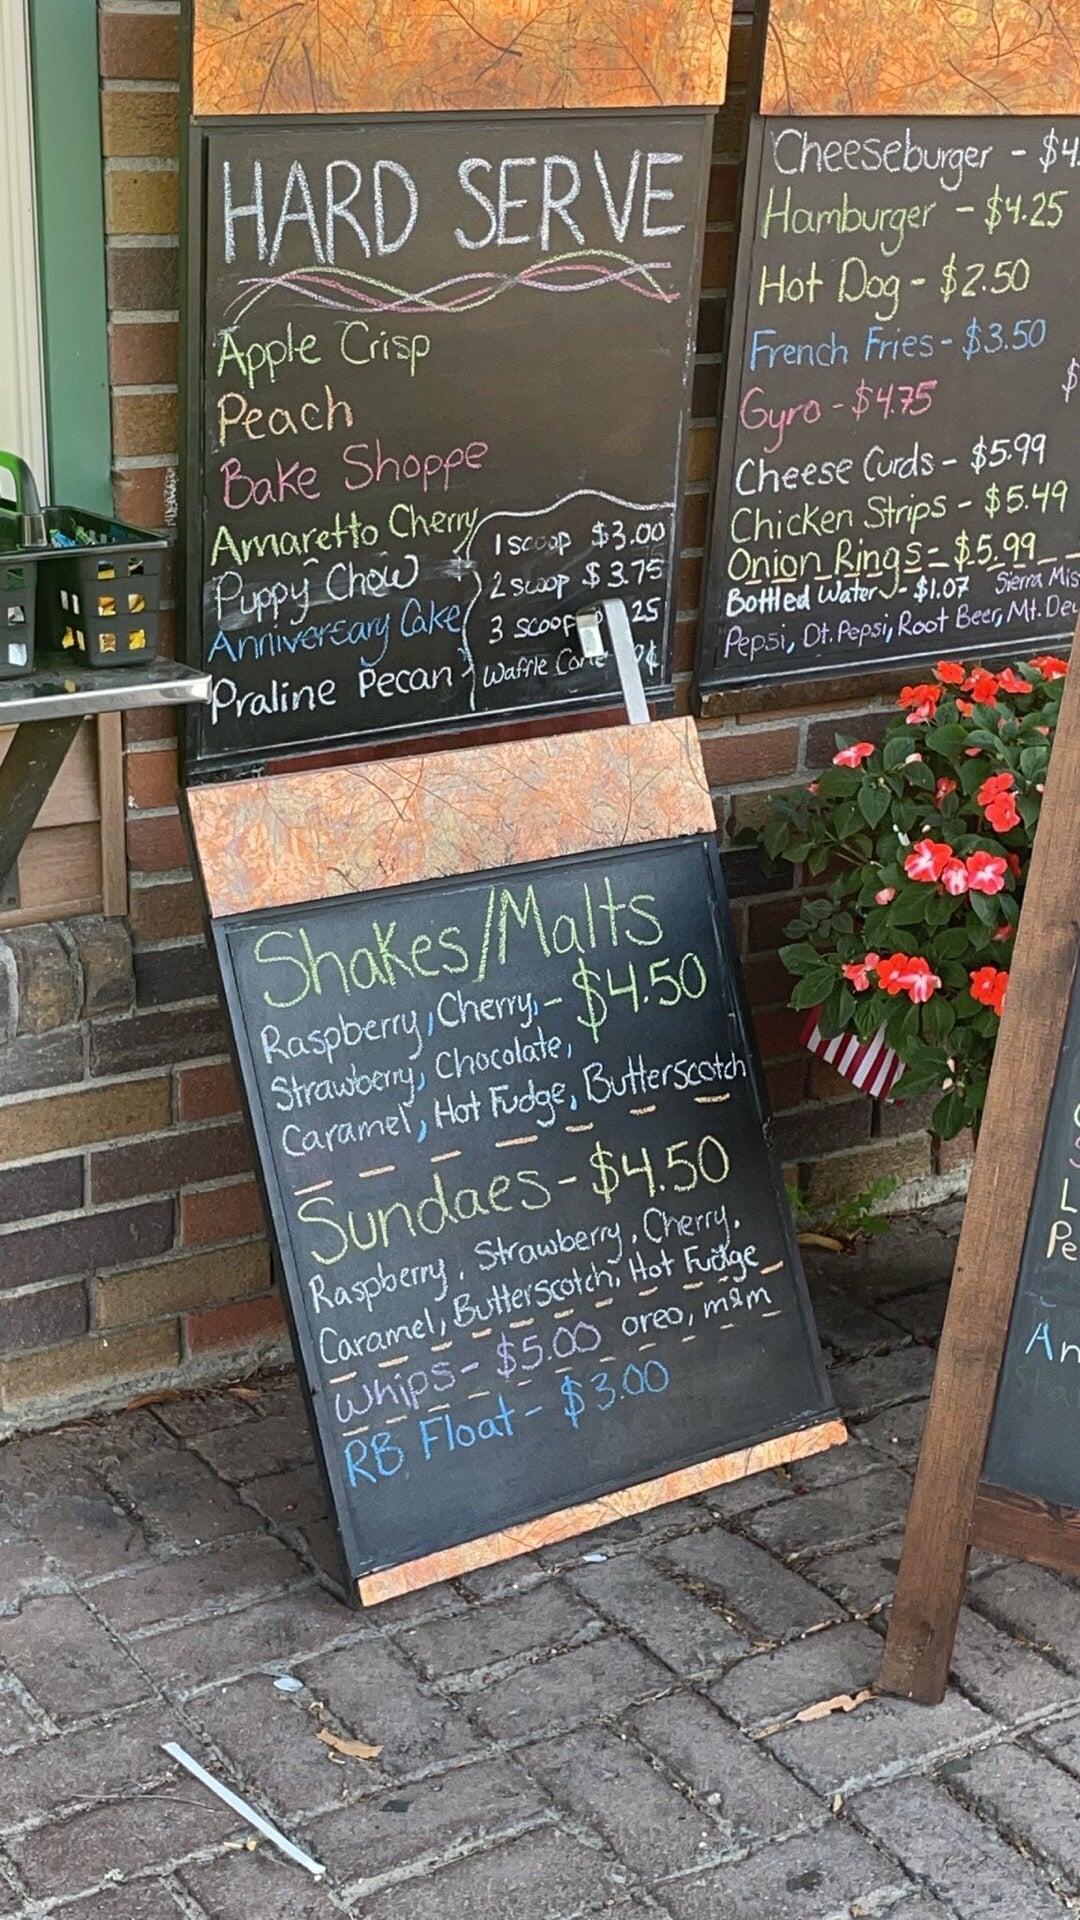 HARD SERVE
Apple Crisp
Peach
Bake Shoppe
Amaretto Cherry
Puppy Chow
Anniversary Cake
Praline Pecan
1 scoop $3.00
2 scoop $3.75
3 scoop 25
Waffle Cone
Cheeseburger - $4.
Hamburger - $4.25
Hot Dog - $2.50
French Fries - $3.50
$
Gyro - $4.75
Cheese Curds - $5.99
Chicken Strips - $5.49
Onion Rings - $5.99
Bottled Water - $1.07 Sierra Mis
Pepsi, Dt. Pepsi, Root Beer, Mt. Dew
Shakes/Malts
Raspberry, Cherry, - $4.50
Strawberry, Chocolate,
Caramel, Hot Fudge, Butterscotch
Sundaes - $4.50
Raspberry, Strawberry, Cherry,
Caramel, Butterscotch, Hot Fudge
Whips - $5.00 oreo, m&m
RB Float - $3.00
L
Pe
An